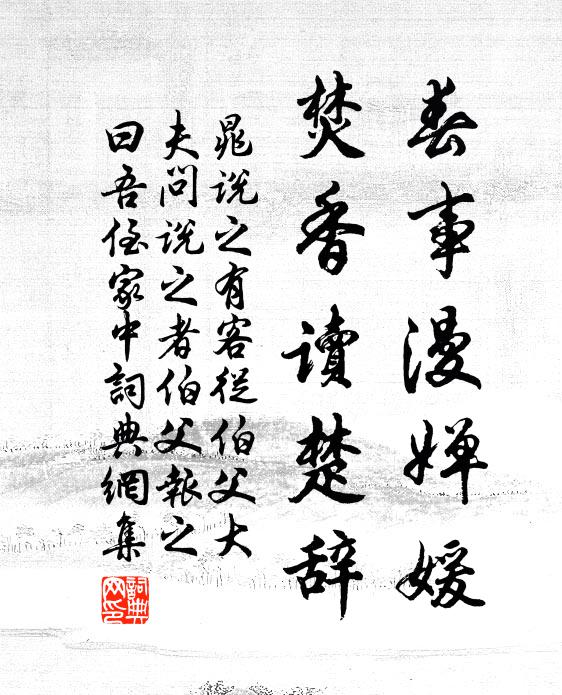 春事漫婵媛
焚香讀楚辞
晁说之有客從伯父大
夫問说之者伯父報之
曰吾侄家中詞典網集
詞典